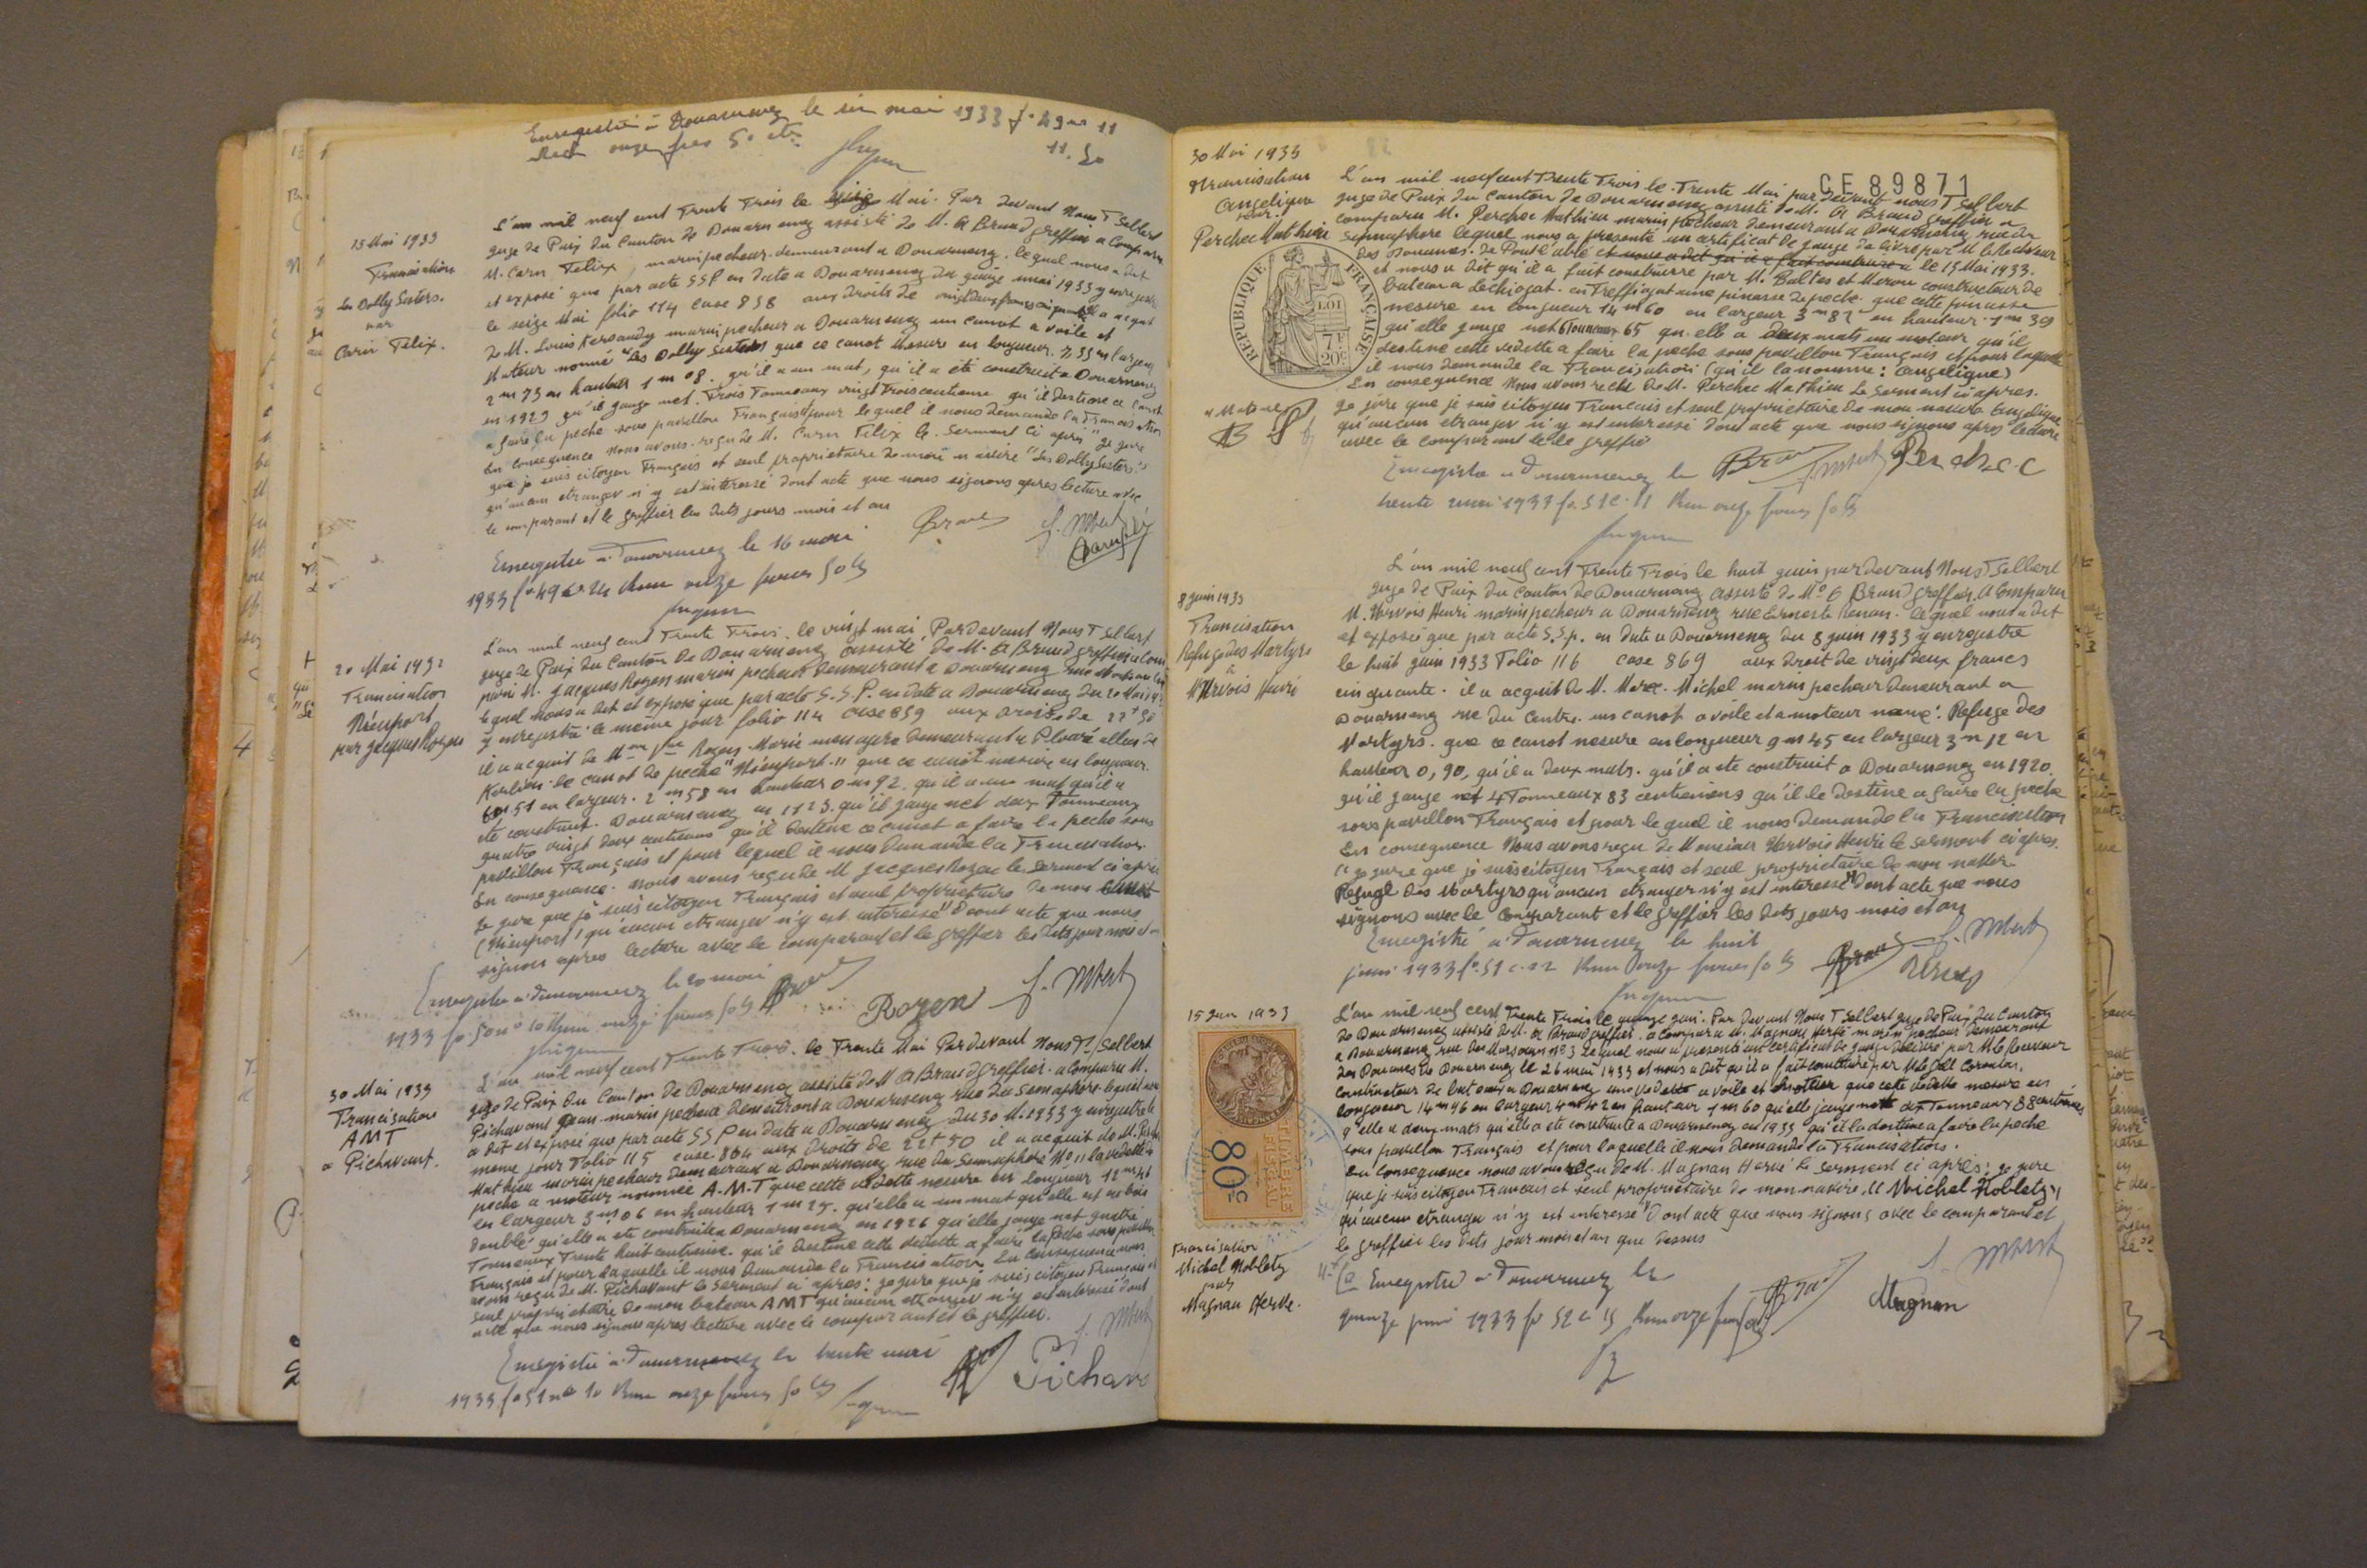 Enregistré à Douarnenez le six mai 1933 fo 49 no 11
Reçu onze frcs 50 cts
11.50
15 Mai 1933
Francisation
Les Dolly Sisters.
par
Carn Felix.
L'an mil neuf cent Trente Trois le seize Mai. Par devant Nous T Sellert
juge de Paix du Canton de Douarnenez assisté de M. A Braud greffier a Comparu
M. Carn Felix, marin pecheur demeurant a Douarnenez. lequel nous a dit
et exposé que par acte SSP en date a Douarnenez du quize mai 1933 y enregistré
le seize Mai folio 114 case 858 aux droits de vingt deux francs cinquante il a acquit
de M. Louis Kersaudy marin pecheur a Douarnenez un Canot a voile et
Moteur nommé "Les Dolly Sisters que ce canot Mesure en longueur. 7,55 en largeur
2 m 73 en hauteur 1 m 08. qu'il a un mat, qu'il a été construit a Douarnenez
en 1929 qu'il jauge net. Trois Tonneaux vingt Trois centieme qu'il destine ce Canot
a faire la peche sous pavillon Français pour lequel il nous demande la Francisation
En consequence Nous avons reçu de M. Carn Felix le Serment ci après "Je jure
que je suis citoyen Français et seul proprietaire de mon navire "Les Dolly Sisters"
qu'aucun etranger n'y est interessé dont acte que nous signons apres lecture avec
le comparant et le greffier les dits jours mois et an
Enregistré à Douarnenez le 16 mai
1933 fo 49 c. 24 Reçu onze francs 50 cts
20 Mai 1932
Francisation
Nieuport
par Jacques Rozen
L'an mil neuf cent Trente Trois. le vingt mai. Pardevant Nous T Sellert
juge de Paix du Canton de Douarnenez assisté de M. A Braud greffier a Com
paru M. Jacques Rozen marin pecheur demeurant a Douarnenez rue
lequel nous a dit et exposé que par acte S.S.P. en date a Douarnenez du 20 Mai
y enregistré le meme jour folio 114 case 859 aux droits de 22f 50
il a acquit de Mme Vve Rozen Marie menagere demeurant a Ploaré allée de
Kerlien le canot de peche "Nieuport" que ce canot mesure en longueur.
6m51 en largeur. 2m58 en hauteur 0m92. qu'il a un mat qu'il a
ete construit. Douarnenez en 1923. qu'il jauge net deux Tonneaux
quatre vingt deux centiemes qu'il destine ce canot a faire la peche sous
pavillon Français et pour lequel il nous demande la Francisation.
En consequence. nous avons reçu de M Jacques Rozen le Serment ci après
Je jure que je suis citoyen Français et seul proprietaire de mon canot
(Nieuport) qu'aucun etranger n'y est interessé" dont acte que nous
signons apres lecture avec le comparant et le greffier les dits jour mois et an
Enregistré à Douarnenez le 20 mai
1933 fo 50 no 10 Reçu onze francs 50 cts
Rozen
30 Mai 1933
Francisation
AMT
a Pichavant.
L'an mil neuf cent Trente Trois. le Trente Mai Pardevant Nous T. Sellert
juge de Paix du Canton de Douarnenez assisté de M A Braud greffier. a Comparu M.
Pichavant Jean marin pecheur demeurant a Douarnenez rue du Semaphore lequel nous
a dit et exposé que par acte SSP en date a Douarnenez du 30 M. 1933 y enregistré le
meme jour Folio 115 case 864 aux droits de 22f 50 il a acquit de M. Perchec
Mathieu marin pecheur demeurant a Douarnenez rue du Semaphore No 11 la vedette de
peche a moteur nommée A.M.T que cette vedette mesure en longueur 12 m 41
en largeur 3 m 06 en hauteur 1 m 25. qu'elle a un mat qu'elle est en bois
doublé qu'elle a ete construite a Douarnenez en 1926 qu'elle jauge net quatre
Tonneaux Trente huit centieme. qu'il destine cette vedette a faire la Peche sous pavillon
Français et pour laquelle il nous demande la Francisation. En Consequence nous
avons reçu de M. Pichavant le Serment ci après: je jure que je suis citoyen Français et
seul proprietaire de mon bateau AMT qu'aucun etranger n'y est interessé dont
acte que nous signons apres lecture avec le comparant et le greffier.
Enregistré à Douarnenez le trente mai
1933 fo 51 no 10 Reçu onze francs 50 cts
Pichav
30 Mai 1933
Francisation
Angelique
pour.
Perchec Mathieu
CE 89871
L'an mil neuf cent Trente Trois le Trente Mai par devant nous T Sellert
juge de Paix du Canton de Douarnenez assisté de M. A Braud greffier a
comparu M. Perchec Mathieu marin pecheur demeurant a Douarnenez rue du
Semaphore lequel nous a presenté un certificat de jauge delivré par M le Receveur
des Douanes. de Pont l'abbé et nous a dit qu'il a fait construire a le 15 Mai 1933.
et nous a dit qu'il a fait construire par M. Baltes et Merou constructeur de
bateau a Lechiagat. en Treffiagat une pinasse de peche. que cette pinasse
mesure en longueur 14 m 60 en largeur 3m82 en hauteur 1m 39
qu'elle jauge net 6 Tonneaux 65 qu'elle a deux mats un moteur qu'il
destine cette vedette a faire la peche sous pavillon Français et pour laquelle
il nous demande la Francisation (qu'il la nomme: Angelique)
En consequence Nous avons reçu de M. Perchec Mathieu le Serment ci apres.
Je jure que je suis citoyen Francais et seul proprietaire de mon navire Angelique
qu'aucun etranger n'y est interessé dont acte que nous signons apres lecture
avec le comparant et le greffier
REPUBLIQUE FRANÇAISE
LOI
7F
20c
Enregistré à Douarnenez le
trente mai 1933 fo 51 c. 11 Reçu onze francs 50 cts
Perchec
8 Juin 1933
Francisation
Refuge des Martyrs
a
Hervois Henri
L'an mil neuf cent Trente Trois le huit juin pardevant Nous T Sellert
juge de Paix du Canton de Douarnenez assisté de Me A Braud greffier, A Comparu
M. Hervois Henri marin pecheur a Douarnenez rue Ernest Renan. lequel nous a dit
et exposé que par acte S.S.p. en date a Douarnenez du 8 juin 1933 y enregistré
le huit juin 1933 Folio 116 case 869 aux droit de vingt deux francs
cinquante. il a acquit de M. Marec. Michel marin pecheur demeurant a
Douarnenez rue du Centre. un canot a voile et a moteur nommé: Refuge des
Martyrs. que ce canot mesure en longueur 9 m 45 en largeur 3 m 12 en
hauteur 0,90, qu'il a deux mats. qu'il a ete construit a Douarnenez en 1920.
qu'il jauge net 4 Tonneaux 83 centiemes qu'il le destine a faire la peche
sous pavillon Français et pour lequel il nous demande la Francisation
En consequence Nous avons reçu de Monsieur Hervois Henri le serment ci apres.
"je jure que je suis citoyen Français et seul proprietaire de mon navire.
Refuge des Martyrs qu'aucun etranger n'y est interessé" Dont acte que nous
signons avec le comparant et le greffier les dits jours mois et an
Enregistré à Douarnenez le huit
juin 1933 fo. 51 c. 22 Reçu onze francs 50 cts
15 Juin 1933
TIMBRE
FISCAL
80c
Francisation
Michel Nobletz
par
Magnan Herve.
L'an mil neuf cent Trente Trois le quinze juin. Par devant Nous T Sellert juge de Paix du Canton
de Douarnenez assisté de M. A Braud greffier. a comparu M. Magnan Hervé marin pecheur demeurant
a Douarnenez rue des Marsouins no 3 lequel nous a presenté un certificat de jauge delivré par M le Receveur
des Douanes de Douarnenez le 26 mai 1933 et nous a dit qu'il a fait construire par M
Constructeur de bateaux a Douarnenez une vedette a voile et que cette vedette mesure en
longueur 14 m 96 en largeur 4 m 42 en hauteur 1 m 60 qu'elle jauge net dix Tonneaux 88 centiemes
qu'elle a deux mats qu'elle a ete construite a Douarnenez en 1933 qu'il la destine a faire la peche
sous pavillon Français et pour laquelle il nous demande la Francisation.
En Consequence nous avons reçu de M. Magnan Hervé le serment ci après: je jure
que je suis citoyen Francais et seul proprietaire de mon navire. "Michel Nobletz",
qu'aucun etranger n'y est interessé" Dont acte que nous signons avec le comparant et
le greffier les dits jour mois et an que dessus
Enregistré à Douarnenez le
quinze juin 1933 fo 52 c 15 Reçu onze francs
Magnan